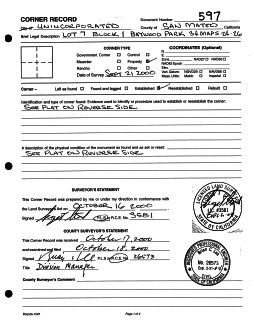 CORNER RECORD
Document Number 597
City of UNINCORPORATED County of SAN MATEO California
Brief Legal Description LOT 7 BLOCK 1 BAYWOOD PARK 36 MAPS 24-26
CORNER TYPE
COORDINATES (Optional)
Government Corner Control
Meander Property
Rancho Other
Date of Survey SEPT 21 2000
Corner - Left as found Found and tagged Established Reestablished Rebuilt
Identification and type of corner found: Evidence used to identify or procedure used to establish or reestablish the corner:
SEE PLAT ON REVERSE SIDE
A description of the physical condition of the monument as found and as set or reset:
SEE PLAT ON REVERSE SIDE
SURVEYOR'S STATEMENT
This Corner Record was prepared by me or under my direction in conformance with
the Land Surveyors Act on OCTOBER 16 2000
Signed P.L.S. or R.C.E. No. 3581
COUNTY SURVEYOR'S STATEMENT
This Corner Record was received October 17, 2000
and examined and filed October 18, 2000
Signed P.L.S. or R.C.E. No. 26573
Title Division Manager
County Surveyor's Comment
Page 1 of 2